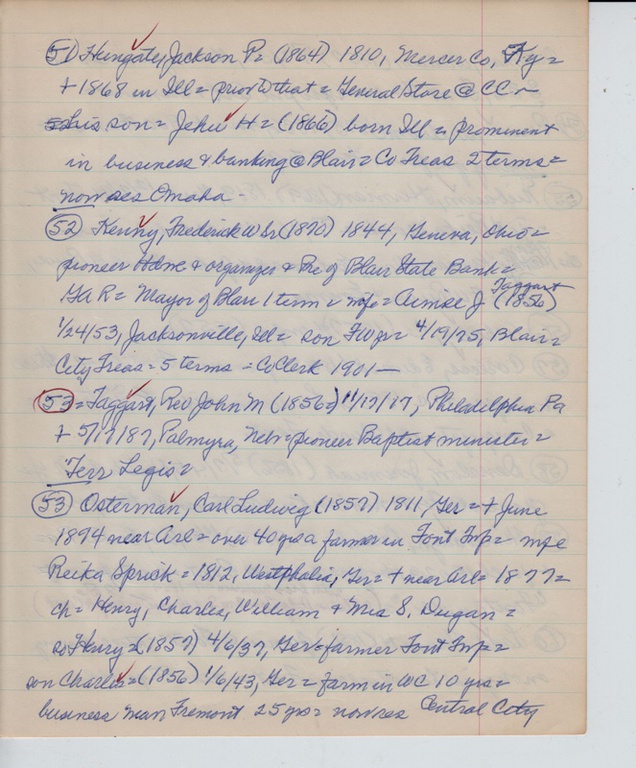 51 Hungate, Jackson P = (1864) 1810, Mercer Co, Ky =
+ 1868 in Ill = prior to that = General Store @ CC ~
His son = Jehu H = (1866) born Ill = prominent
in business & banking @ Blair = Co Treas 2 terms =
now res Omaha -
52 Kenny, Frederick W Sr (1870) 1844, Geneva, Ohio =
pioneer Hdwe & organizer & Pre of Blair State Bank =
GAR = Mayor of Blair 1 term = wife = J Taggart (1856)
1/24/53, Jacksonville, Ill = son FW Jr = 4/19/75, Blair =
City Treas = 5 terms = Co Clerk 1901 —
53 = Taggart, Rev John M (1856) 11/17/17, Philadelphia Pa
+ 5/17/87, Palmyra, Neb = pioneer Baptist minister =
Terr Legis =
53 Osterman, Carl Ludwig (1857) 1811, Ger = + June
1894 near Arl = over 40 yrs a farmer in Font Twp =
Reika Sprick = 1812, Westphalia, Ger = + near Arl = 1877 =
ch = Henry, Charles, William & Mrs S. Dugan =
so Henry = (1857) 4/6/37, Ger = farmer Font Twp =
son Charles = (1856) 1/6/43, Ger = farm in WC 10 yrs =
business man Fremont 25 yrs = now res Central City